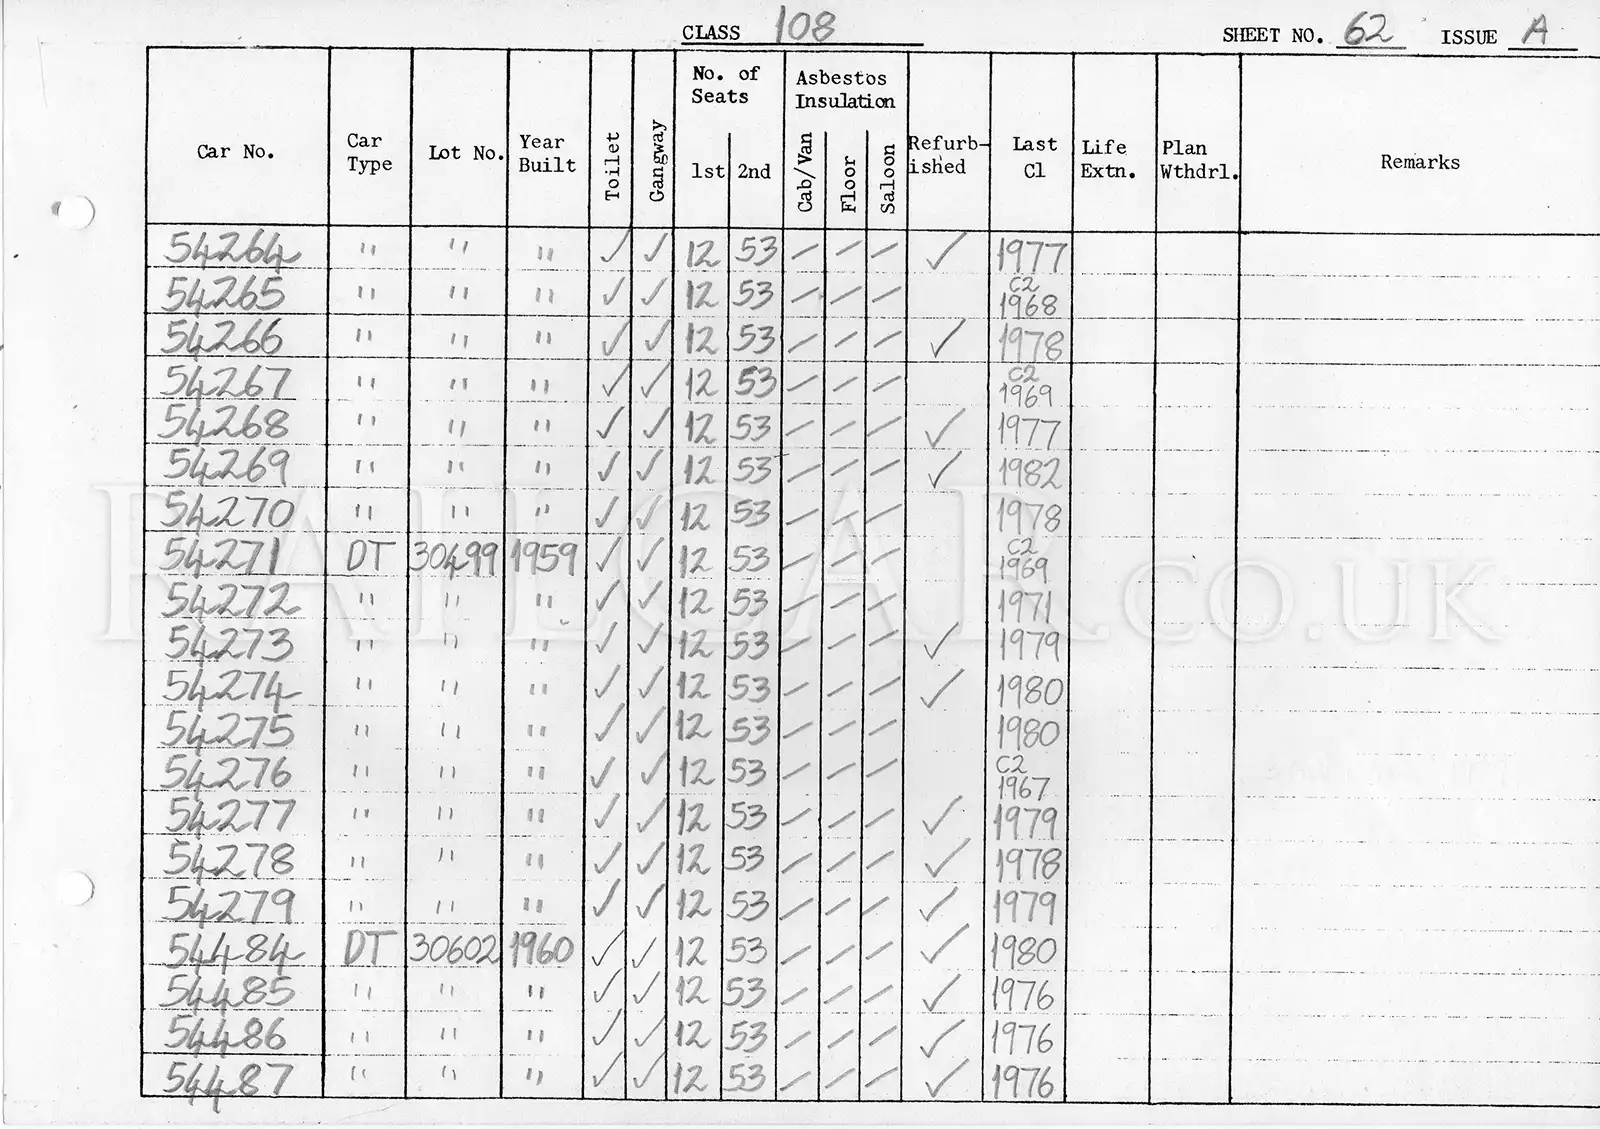 CLASS 108 SHEET NO. 62 ISSUE A
Car No. Car Type Lot No. Year Built Toilet Gangway No. of Seats 1st 2nd Asbestos Insulation Cab/Van Floor Saloon Refurb-ished Last Cl Life Extn. Plan Wthdrl. Remarks
54264 " " " ✓ ✓ 12 53 — — — ✓ 1977
54265 " " " ✓ ✓ 12 53 — — — C2 1968
54266 " " " ✓ ✓ 12 53 — — — ✓ 1978
54267 " " " ✓ ✓ 12 53 — — — C2 1969
54268 " " " ✓ ✓ 12 53 — — — ✓ 1977
54269 " " " ✓ ✓ 12 53 — — — ✓ 1982
54270 " " " ✓ ✓ 12 53 — — — 1978
54271 DT 30499 1959 ✓ ✓ 12 53 — — — C2 1969
54272 " " " ✓ ✓ 12 53 — — — 1971
54273 " " " ✓ ✓ 12 53 — — — ✓ 1979
54274 " " " ✓ ✓ 12 53 — — — ✓ 1980
54275 " " " ✓ ✓ 12 53 — — — 1980
54276 " " " ✓ ✓ 12 53 — — — C2 1967
54277 " " " ✓ ✓ 12 53 — — — ✓ 1979
54278 " " " ✓ ✓ 12 53 — — — ✓ 1978
54279 " " " ✓ ✓ 12 53 — — — ✓ 1979
54484 DT 30602 1960 ✓ ✓ 12 53 — — — ✓ 1980
54485 " " " ✓ ✓ 12 53 — — — ✓ 1976
54486 " " " ✓ ✓ 12 53 — — — ✓ 1976
54487 " " " ✓ ✓ 12 53 — — — ✓ 1976
RAILCAR.CO.UK